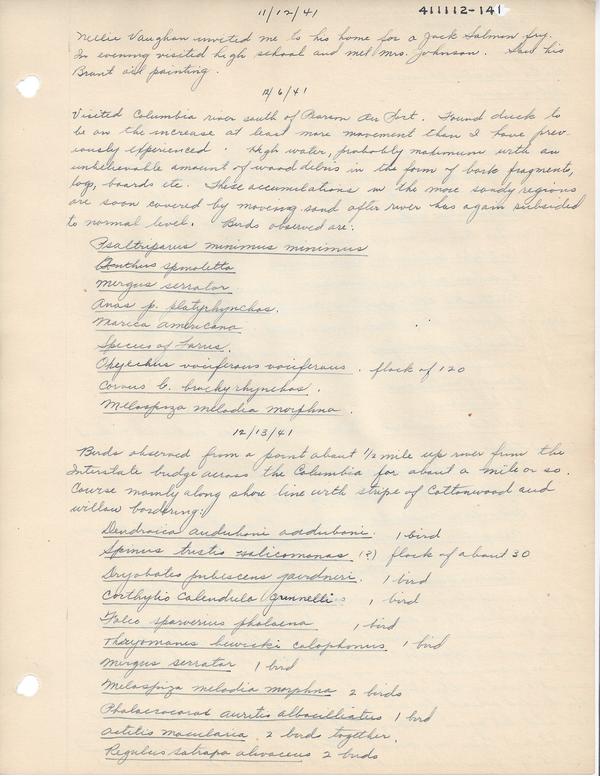 11/12/41
411112-141
Nellie Vaughan invited me to his home for a Jack Salmon fry.
In evening visited high school and met Mrs. Johnson. Saw his
Brant oil painting.
12/6/41
Visited Columbia river south of Pearson Air Port. Found duck to
be on the increase at least more movement than I have prev-
iously experienced. High water, probably maximum with an
unbelievable amount of wood debris in the form of bark fragments,
logs, boards etc. These accumulations in the more sandy regions
are soon covered by moving sand after river has again subsided
to normal level. Birds observed are:
Psaltriparus minimus minimus
Anthus spinoletta
Mergus serrator
Anas p. platyrhynchos.
Mareca americana
Species of Larus.
Oxyechus vociferous vociferous. flock of 120
Corvus b. brachyrhynchos.
Melospiza melodia morphna.
12/13/41
Birds observed from a point about 1/2 mile up river from the
Interstate bridge across the Columbia for about a mile or so.
Course mainly along shore line with stripe of Cottonwood and
willow bordering:
Dendroica auduboni auduboni. 1 bird
Spinus tristis salicomanas (?) flock of about 30
Dryobates pubescens gairdneri. 1 bird
Corthylio Calendula Grinnelli 1 bird
Falco sparverius phalaena 1 bird
Thryomanes bewicki calophonus. 1 bird
Mergus serrator 1 bird
Melospiza melodia morphna 2 birds
Phalacrocorax auritis albociliatus 1 bird
Actitis macularia. 2 birds together.
Regulus satrapa olivaceus 2 birds